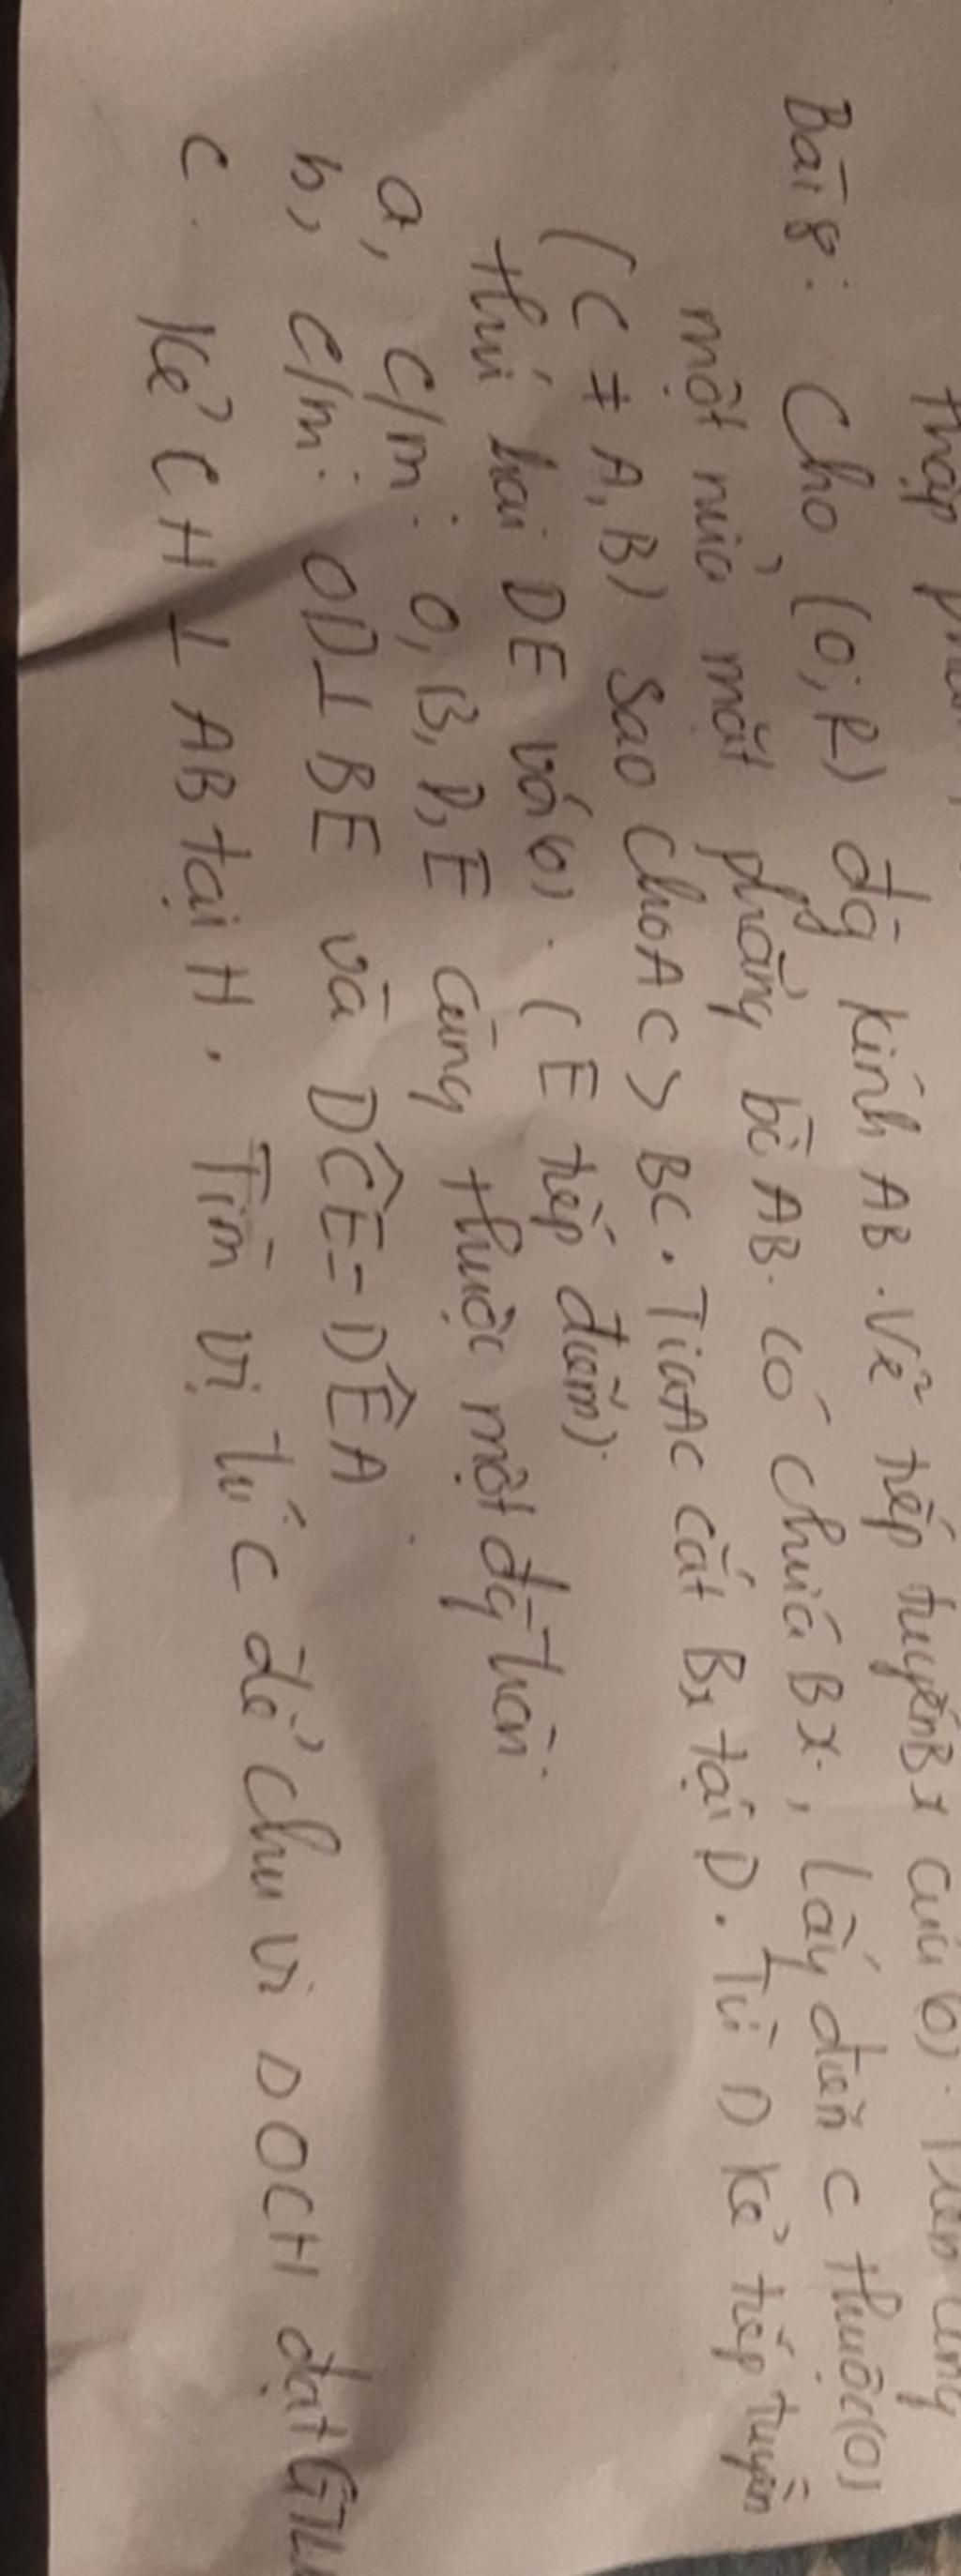 thập
Bài 8: Cho (O; R) đg kính AB. Vẽ tiếp tuyến Bx của (O). Trên cùng
một nửa mặt phẳng bờ AB. có chứa Bx, lấy điểm C thuộc (O)
(C ≠ A, B) sao cho AC > BC. Tia AC cắt Bx tại D. Từ D kẻ tiếp tuyến
thứ hai DE với (O). (E tiếp điểm).
a, C/m: O, B, D, E cùng thuộc một đg tròn.
b, C/m: OD ⊥ BE và DĈE = DÊA
c. Kẻ CH ⊥ AB tại H. Tìm vị trí C để chu vi Δ OCH đạt GTLN